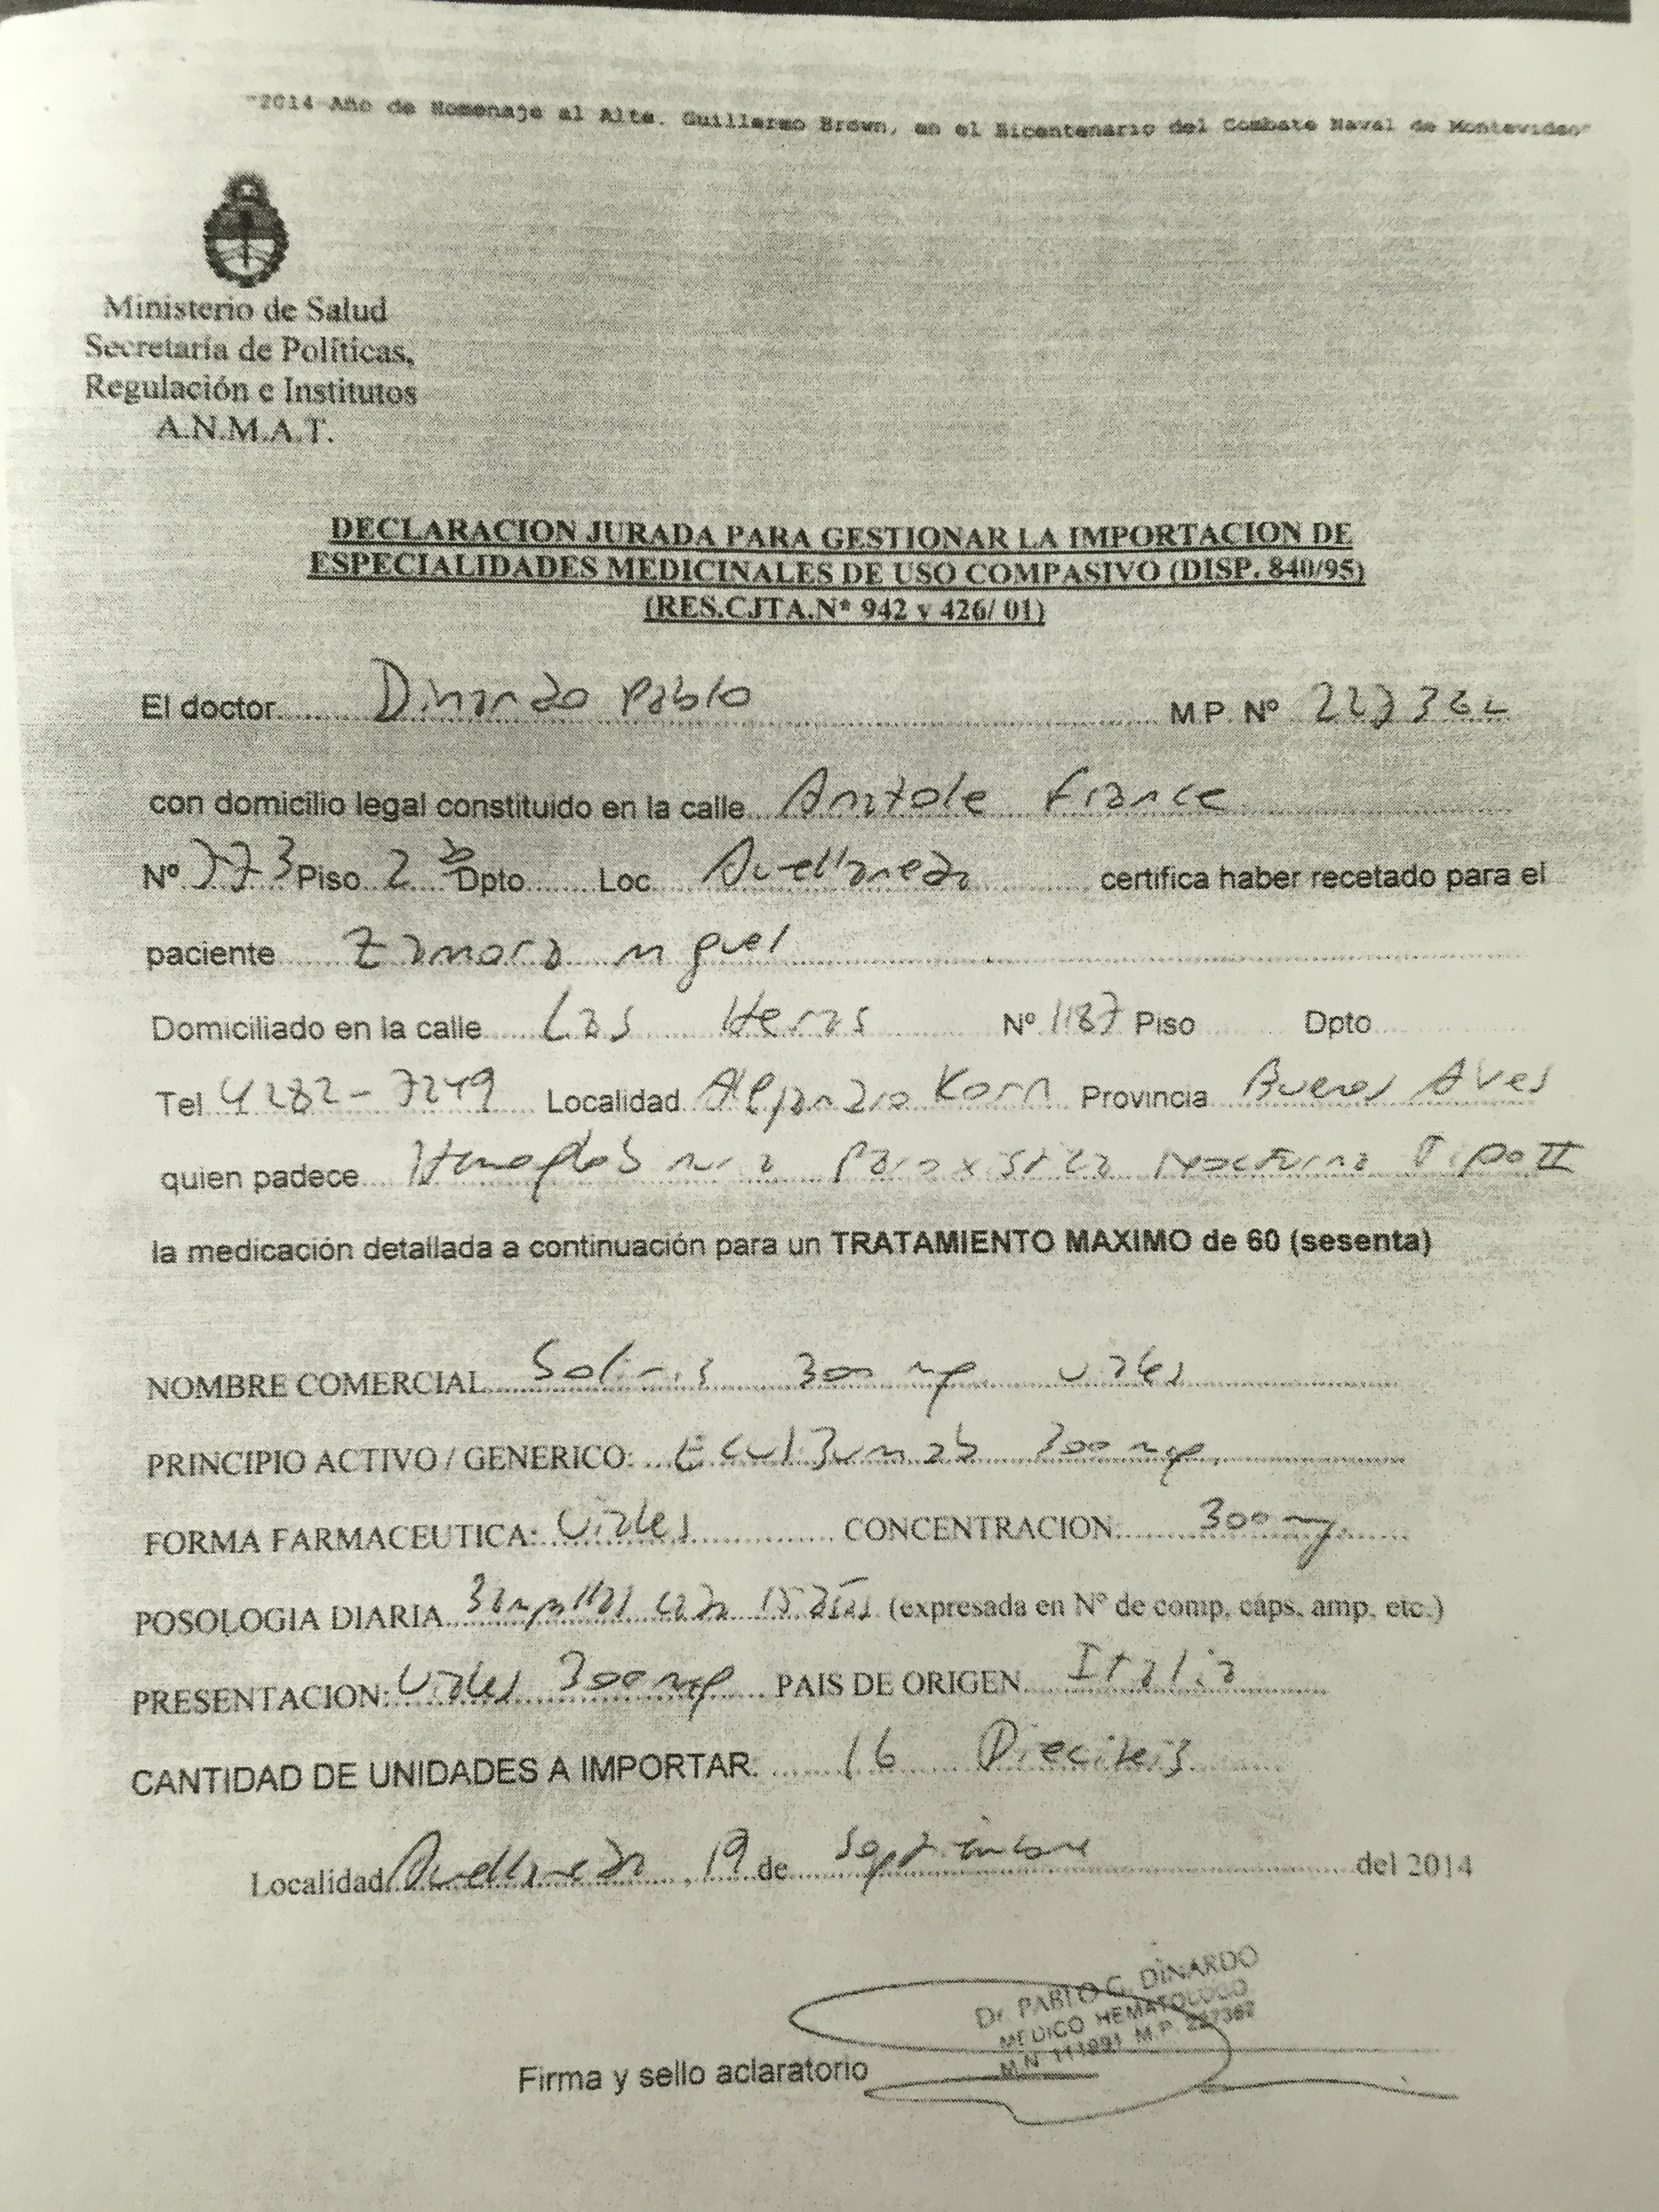 "2014-Año de Homenaje al Alte. Guillermo Brown, en el Bicentenario del Combate Naval de Montevideo"
Ministerio de Salud
Secretaría de Políticas,
Regulación e Institutos
A.N.M.A.T.
DECLARACION JURADA PARA GESTIONAR LA IMPORTACION DE
ESPECIALIDADES MEDICINALES DE USO COMPASIVO (DISP. 840/95)
(RES.CJTA.Nº 942 y 426/ 01)
El doctor Dinardo Pablo M.P. Nº 227362
con domicilio legal constituido en la calle Anatole France
Nº 773 Piso 2 Dpto Loc Avellaneda certifica haber recetado para el
paciente Zamora Miguel
Domiciliado en la calle Las Heras Nº 1187 Piso Dpto
Tel 4282-7249 Localidad Alejandro Korn Provincia Buenos Aires
quien padece Hemoglobinuria Paroxistica Nocturna Tipo II
la medicación detallada a continuación para un TRATAMIENTO MAXIMO de 60 (sesenta)
NOMBRE COMERCIAL Soliris 300 mg viales
PRINCIPIO ACTIVO / GENERICO: Eculizumab 300 mg.
FORMA FARMACEUTICA: Viales CONCENTRACION: 300 mg.
POSOLOGIA DIARIA 3 ampollas cada 15 días (expresada en Nº de comp, cáps, amp, etc.)
PRESENTACION: Viales 300 mg PAIS DE ORIGEN Italia
CANTIDAD DE UNIDADES A IMPORTAR: 16 Dieciseis
Localidad Avellaneda, 19 de Septiembre del 2014
Dr. PABLO G. DINARDO
MEDICO HEMATOLOGO
M.N. 111991 M.P. 227362
Firma y sello aclaratorio